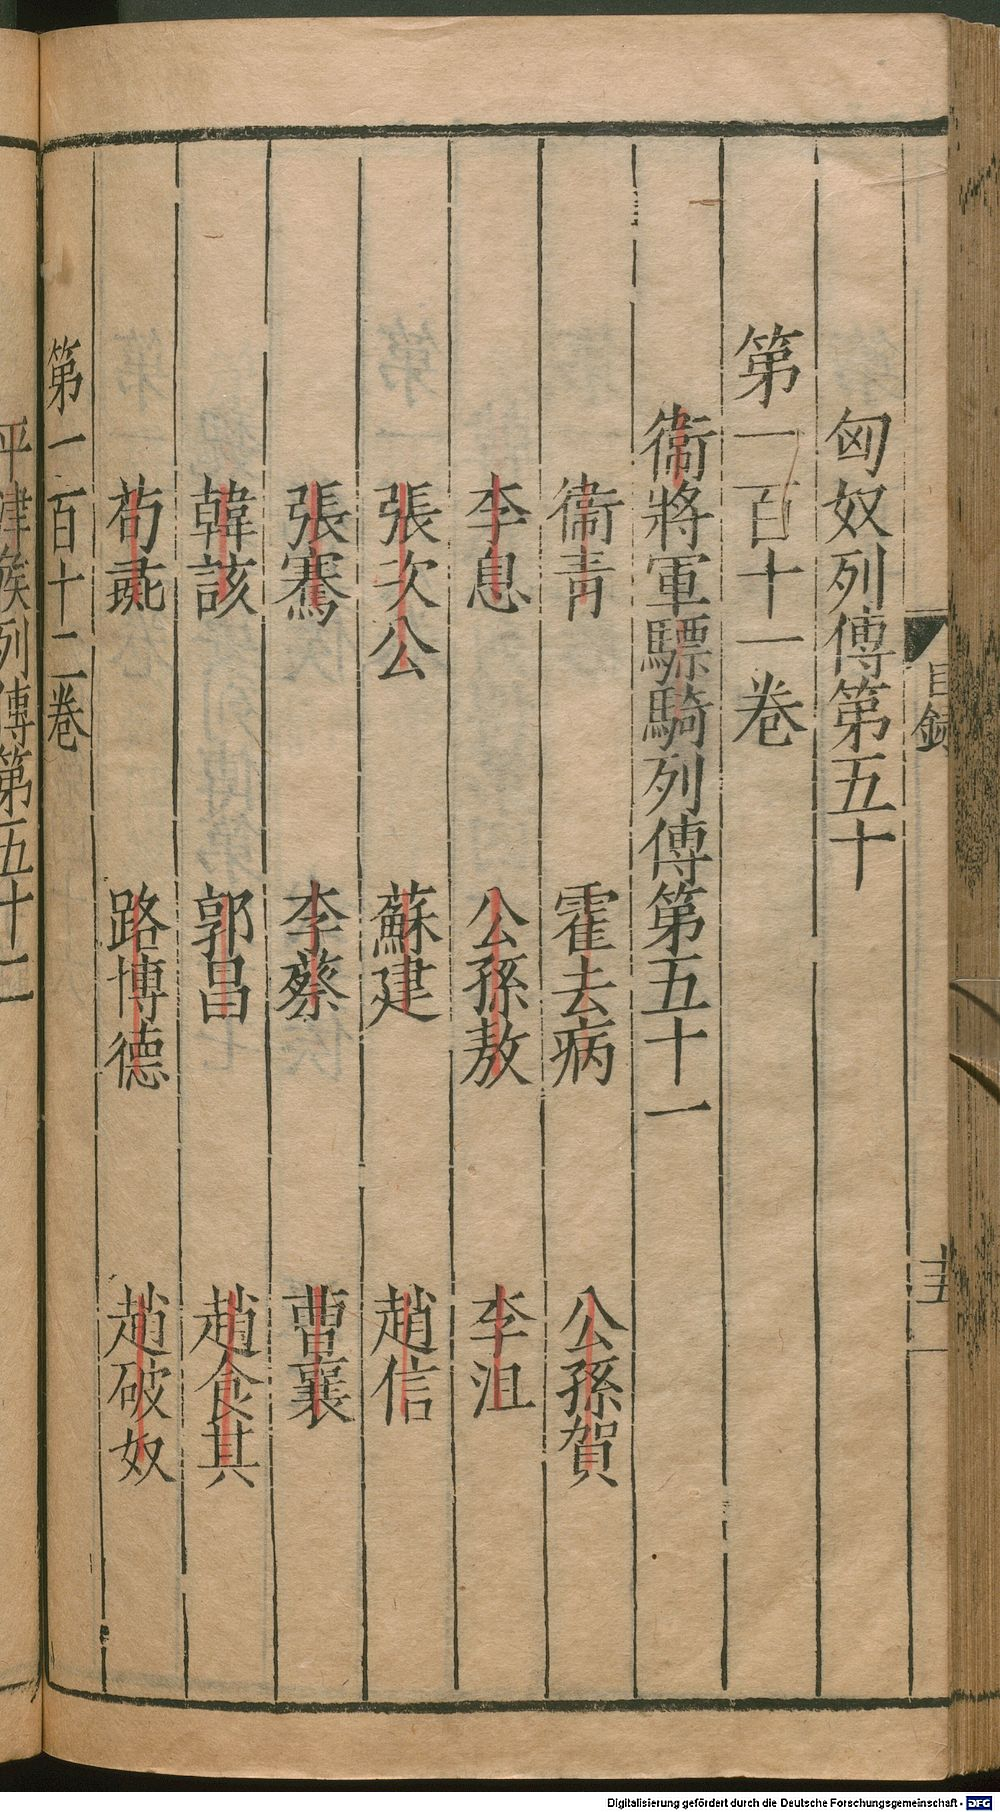 目録
十五
匈奴列傳第五十
第一百十一卷
衛將軍驃騎列傳第五十一
衛青 霍去病 公孫賀
李息 公孫敖 李沮
張次公 蘇建 趙信
張騫 李蔡 曹襄
韓該 郭昌 趙食其
荀彘 路博德 趙破奴
第一百十二卷
平津矦列傳第五十二
Digitalisierung gefördert durch die Deutsche Forschungsgemeinschaft - DFG